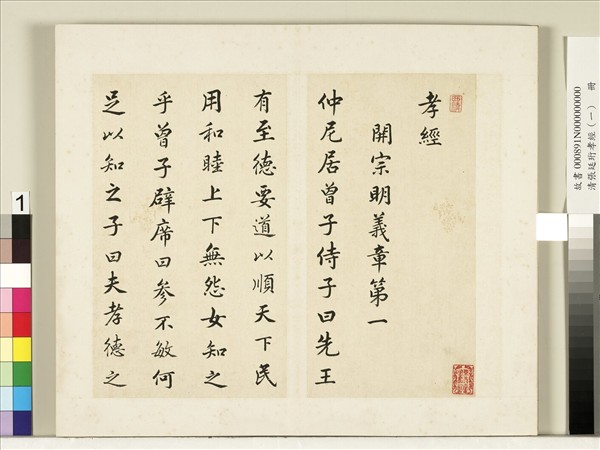 孝經
開宗明義章第一
仲尼居曾子侍子曰先王
有至德要道以順天下民
用和睦上下無怨女知之
乎曾子辟席曰參不敏何
足以知之子曰夫孝德之
故書 000891N000000000 冊
清張廷珩孝經（一）
1